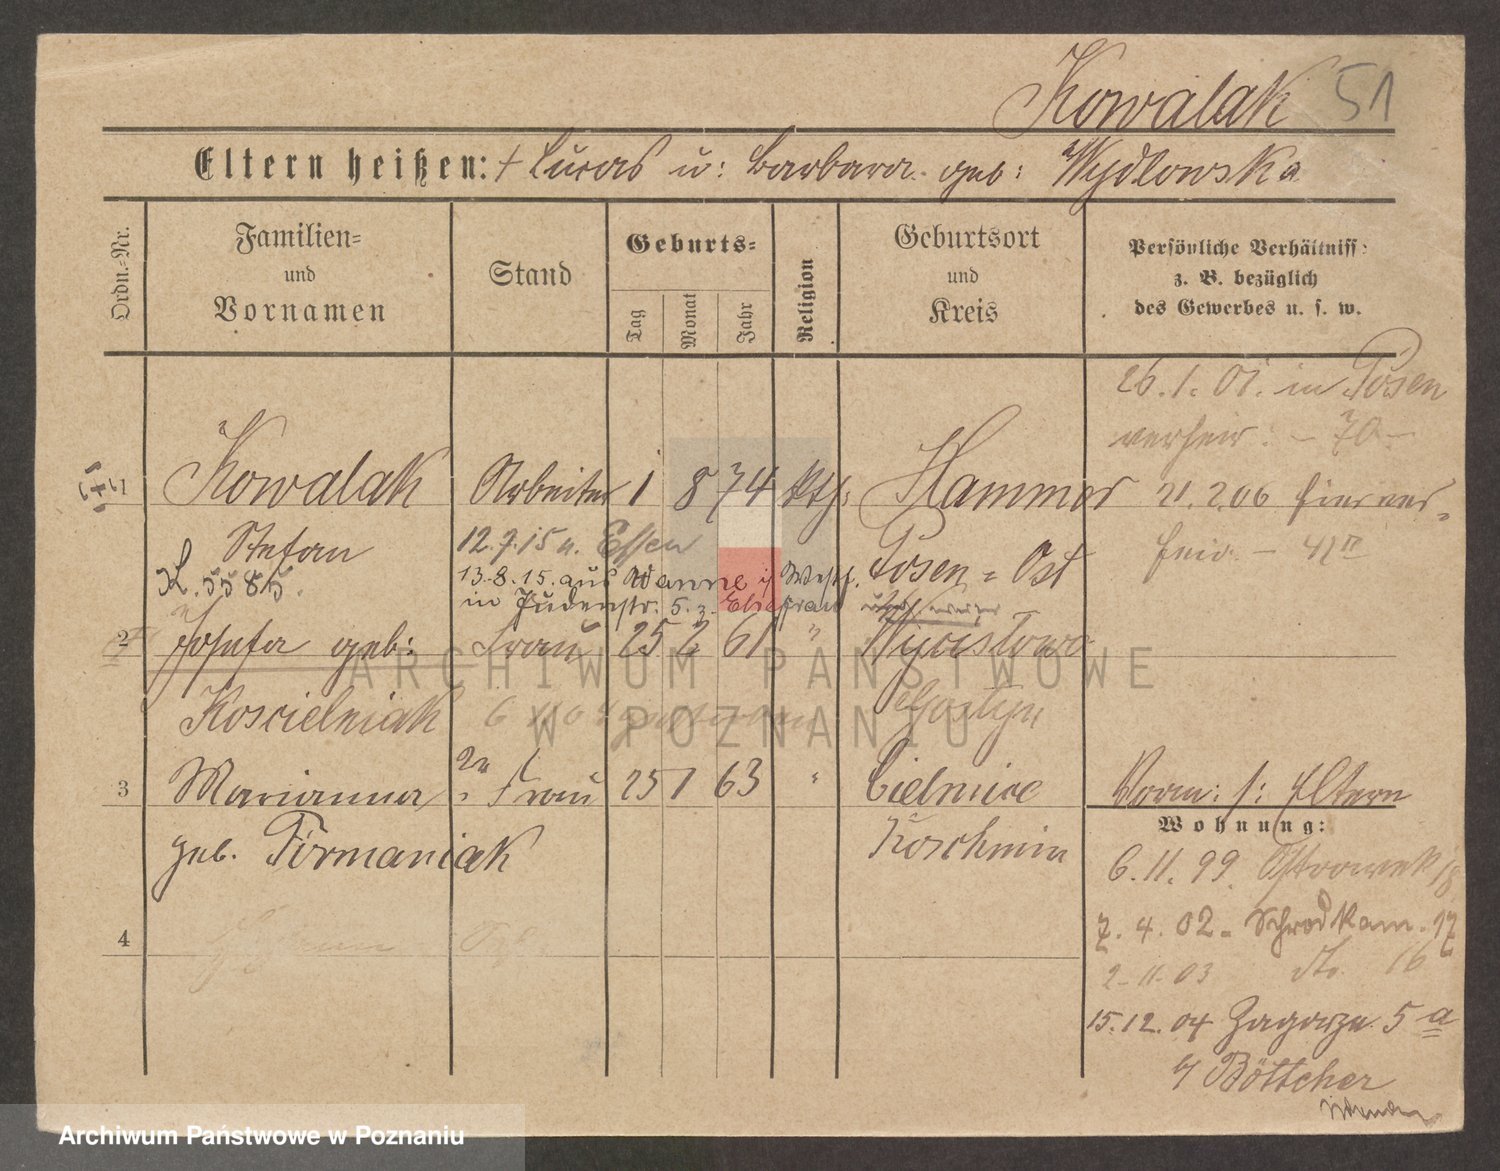 Kowalak 51
Eltern heißen: + Lucas u: Barbara geb: Wydlowska
Ordn.-Nr.
Familien-
und
Vornamen
Stand
Geburts-
Tag
Monat
Jahr
Religion
Geburtsort
und
Kreis
Persönliche Verhältniss-
z. B. bezüglich
des Gewerbes u. s. w.
26.1.01. in Posen
verheir. - 70 -
1 Kowalak Arbeiter 1 8 74 kth: Hammer 21.2.06 hier ver-
Stefan 12.7.15 n. Essen Posen-Ost
K. 5585. 13.8.15. aus Wanne i/ Westf.
in Judenstr. 5. z. Ehefrau
2 Josefa geb: Frau 25 2 61 "
Koscielniak Gostyn
3 Marianna 2te Frau 25 1 63 " Cielmice Worm: s: Eltern
geb. Firmaniak Koschmin
Wohnung:
6.11.99. Ostrowek 18
7.4.02- Schrodkam. 17
2-11.03 do. 16
4
15.12.04 Zagorze 5 a
b/ Böttcher
ARCHIWUM PAŃSTWOWE
W POZNANIU
Archiwum Państwowe w Poznaniu